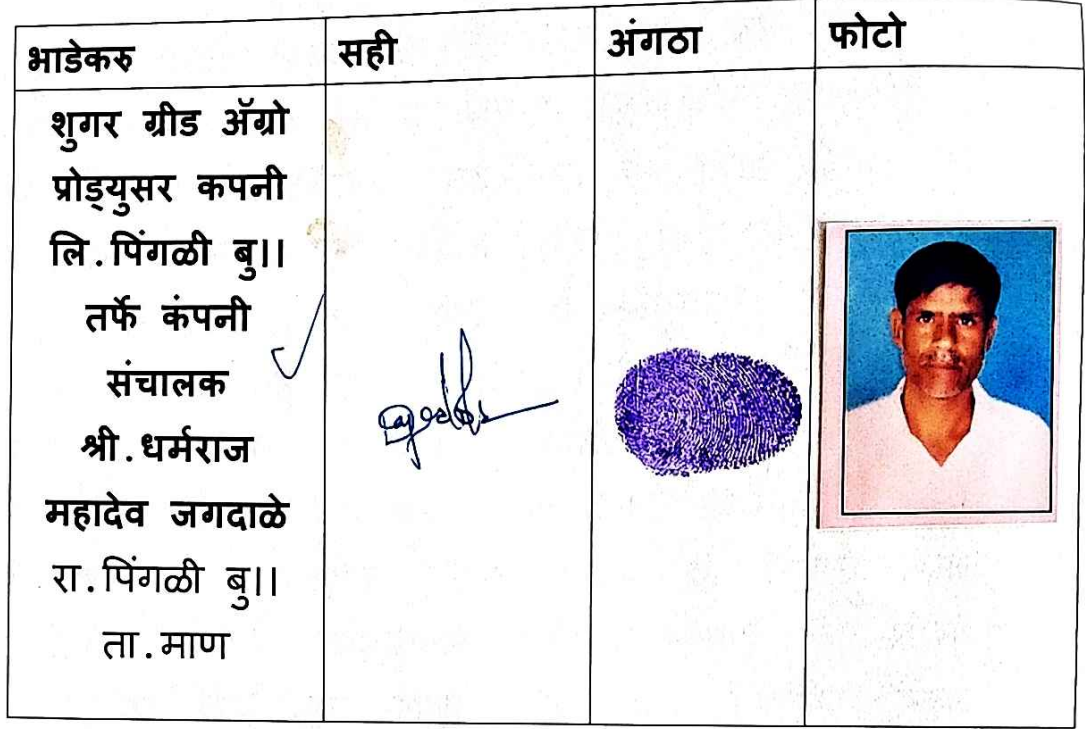 भाडेकरु सही अंगठा फोटो
शुगर ग्रीड ॲग्रो
प्रोड्युसर कपनी
लि.पिंगळी बु।।
तर्फे कंपनी
संचालक
श्री.धर्मराज
महादेव जगदाळे
रा.पिंगळी बु।।
ता.माण